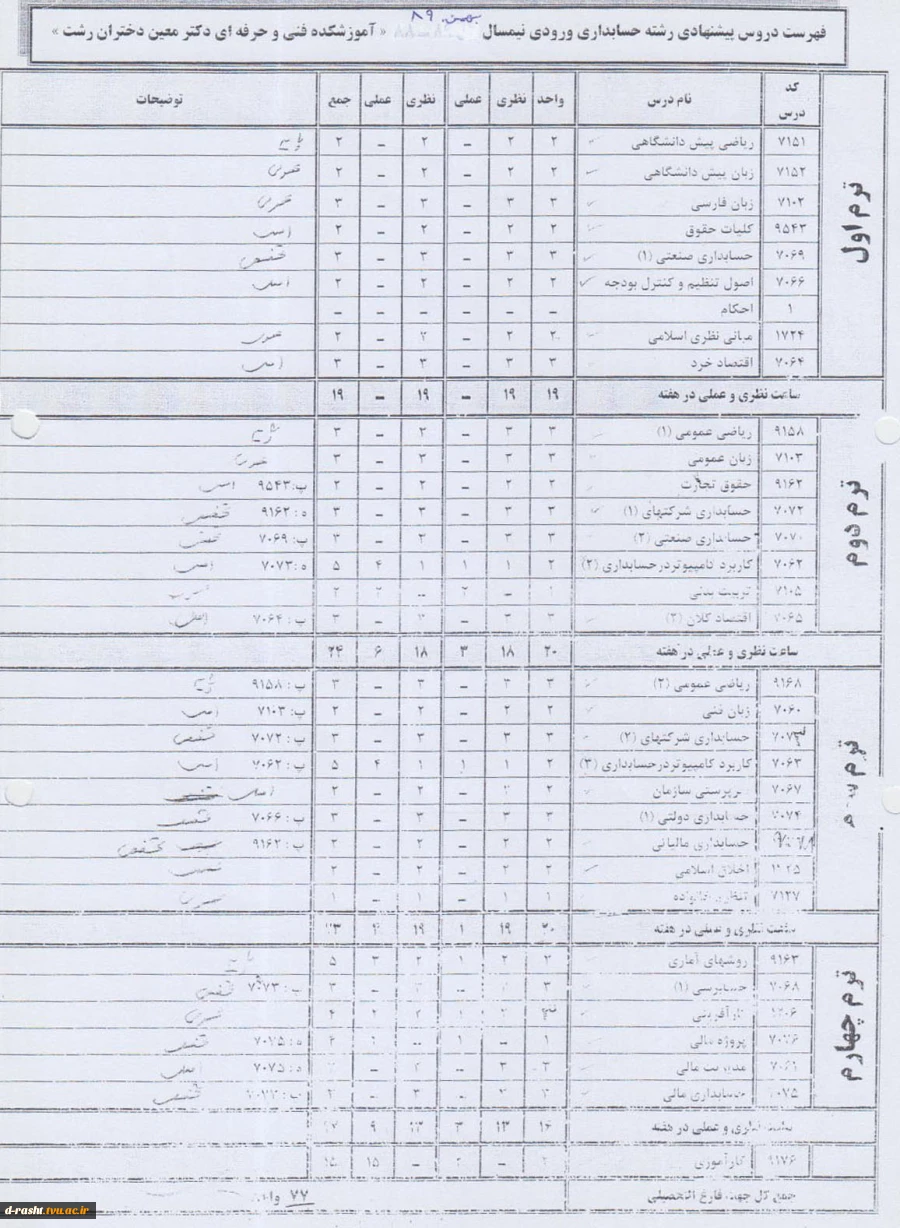 بهمن ۸۹
فهرست دروس پیشنهادی رشته حسابداری ورودی نیمسال « آموزشکده فنی و حرفه ای دکتر معین دختران رشت »
کد درس نام درس واحد نظری عملی نظری عملی جمع توضیحات
ترم اول
۷۱۵۱ ریاضی پیش دانشگاهی ۲ ۲ – ۲ – ۲ پایه
۷۱۵۲ زبان پیش دانشگاهی ۲ ۲ – ۲ – ۲ عمومی
۷۱۰۲ زبان فارسی ۳ ۳ – ۳ – ۳ عمومی
۹۵۴۳ کلیات حقوق ۲ ۲ – ۲ – ۲ اصلی
۷۰۶۹ حسابداری صنعتی (۱) ۳ ۳ – ۳ – ۳ تخصصی
۷۰۶۶ اصول تنظیم و کنترل بودجه ۲ ۲ – ۲ – ۲ اصلی
۱ احکام – – – – – –
۱۷۲۴ مبانی نظری اسلامی ۲ ۲ – ۲ – ۲ عمومی
۷۰۶۴ اقتصاد خرد ۳ ۳ – ۳ – ۳ اصلی
ساعت نظری و عملی در هفته ۱۹ ۱۹ – ۱۹ – ۱۹
ترم دوم
۹۱۵۸ ریاضی عمومی (۱) ۳ ۳ – ۳ – ۳ پایه
۷۱۰۳ زبان عمومی ۳ ۳ – ۳ – ۳ عمومی
۹۱۶۲ حقوق تجارت ۲ ۲ – ۲ – ۲ پ: ۹۵۴۳ اصلی
۷۰۷۲ حسابداری شرکتهای (۱) ۳ ۳ – ۳ – ۳ ه: ۹۱۶۲ تخصصی
۷۰۷۰ حسابداری صنعتی (۲) ۳ ۳ – ۳ – ۳ پ: ۷۰۶۹ تخصصی
۷۰۶۲ کاربرد کامپیوتردرحسابداری (۲) ۲ ۱ ۱ ۱ ۴ ۵ ه: ۷۰۷۳ اصلی
۷۱۰۵ تربیت بدنی ۱ – ۲ – ۲ ۲
۷۰۶۵ اقتصاد کلان (۲) ۳ ۳ – ۳ – ۳ پ: ۷۰۶۴ اصلی
ساعت نظری و عملی در هفته ۲۰ ۱۸ ۳ ۱۸ ۶ ۲۴
ترم سوم
۹۱۶۸ ریاضی عمومی (۲) ۳ ۳ – ۳ – ۳ پ: ۹۱۵۸ پایه
۷۰۶۰ زبان فنی ۲ ۲ – ۲ – ۲ پ: ۷۱۰۳ اصلی
۷۰۷۳ حسابداری شرکتهای (۲) ۳ ۳ – ۳ – ۳ پ: ۷۰۷۲ تخصصی
۷۰۶۳ کاربرد کامپیوتردرحسابداری (۳) ۲ ۱ ۱ ۱ ۴ ۵ پ: ۷۰۶۲ اصلی
۷۰۶۷ سرپرستی سازمان ۲ ۲ – ۲ – ۲ اصلی
۷۰۷۴ حسابداری دولتی (۱) ۳ ۳ – ۳ – ۳ پ: ۷۰۶۶ تخصصی
حسابداری مالیاتی ۲ ۲ – ۲ – ۲ پ: ۹۱۶۲ تخصصی
اخلاق اسلامی ۲ ۲ – ۲ – ۲
۷۱۲۷ تنظیم خانواده ۱ ۱ – ۱ – ۱ عمومی
ساعت نظری و عملی در هفته ۲۰ ۱۹ ۱ ۱۹ ۴ ۲۳
ترم چهارم
۹۱۶۳ روشهای آماری ۳ ۲ ۱ ۲ ۳ ۵ پایه
۷۰۶۸ حسابرسی (۱) ۳ – – ۳ پ: ۷۰۷۳ تخصصی
کارآفرینی ۴ عمومی
۷۰۷۶ پروژه مالی ۱ – ۱ – ه: ۷۰۷۵ تخصصی
۷۰۶۱ مدیریت مالی – – ه: ۷۰۷۵ اصلی
۷۰۷۵ حسابداری مالی – – تخصصی
ساعت نظری و عملی در هفته ۱۶ ۱۳ ۳ ۱۳ ۹
۹۱۷۶ کارآموزی ۲ – ۲ – ۱۵ ۱۵
جمع کل جهت فارغ التحصیلی ۷۷ واحد
d-rasht.tvu.ac.ir